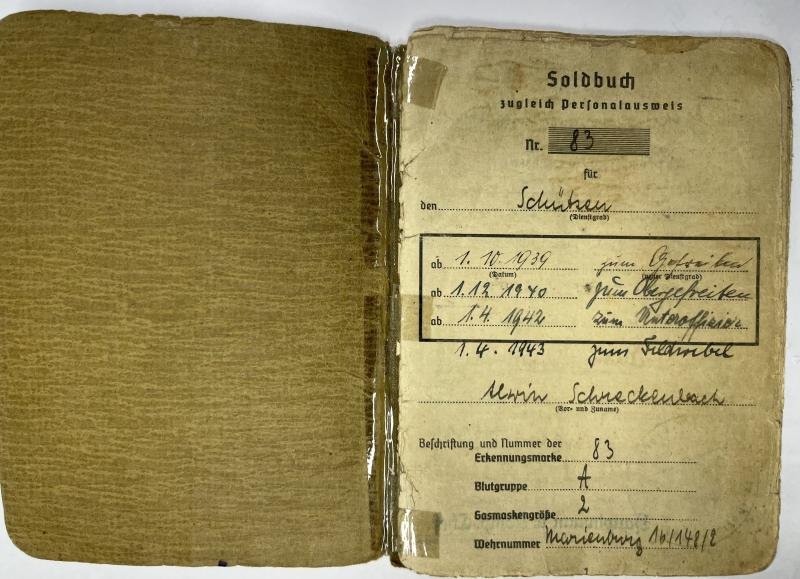 Soldbuch
zugleich Personalausweis
Nr. 83
für
den Schützen
(Dienstgrad)
ab 1.10.1939 zum Gefreiten
(Datum) (neuer Dienstgrad)
ab 1.12 1940 zum Obergefreiten
ab 1.4. 1942 zum Unteroffizier
1.4. 1943 zum Feldwebel
Alwin Schreckenbach
(Vor- und Zuname)
Beschriftung und Nummer der
Erkennungsmarke 83
Blutgruppe A
Gasmaskengröße 2
Wehrnummer Marienburg 16/148/2
1